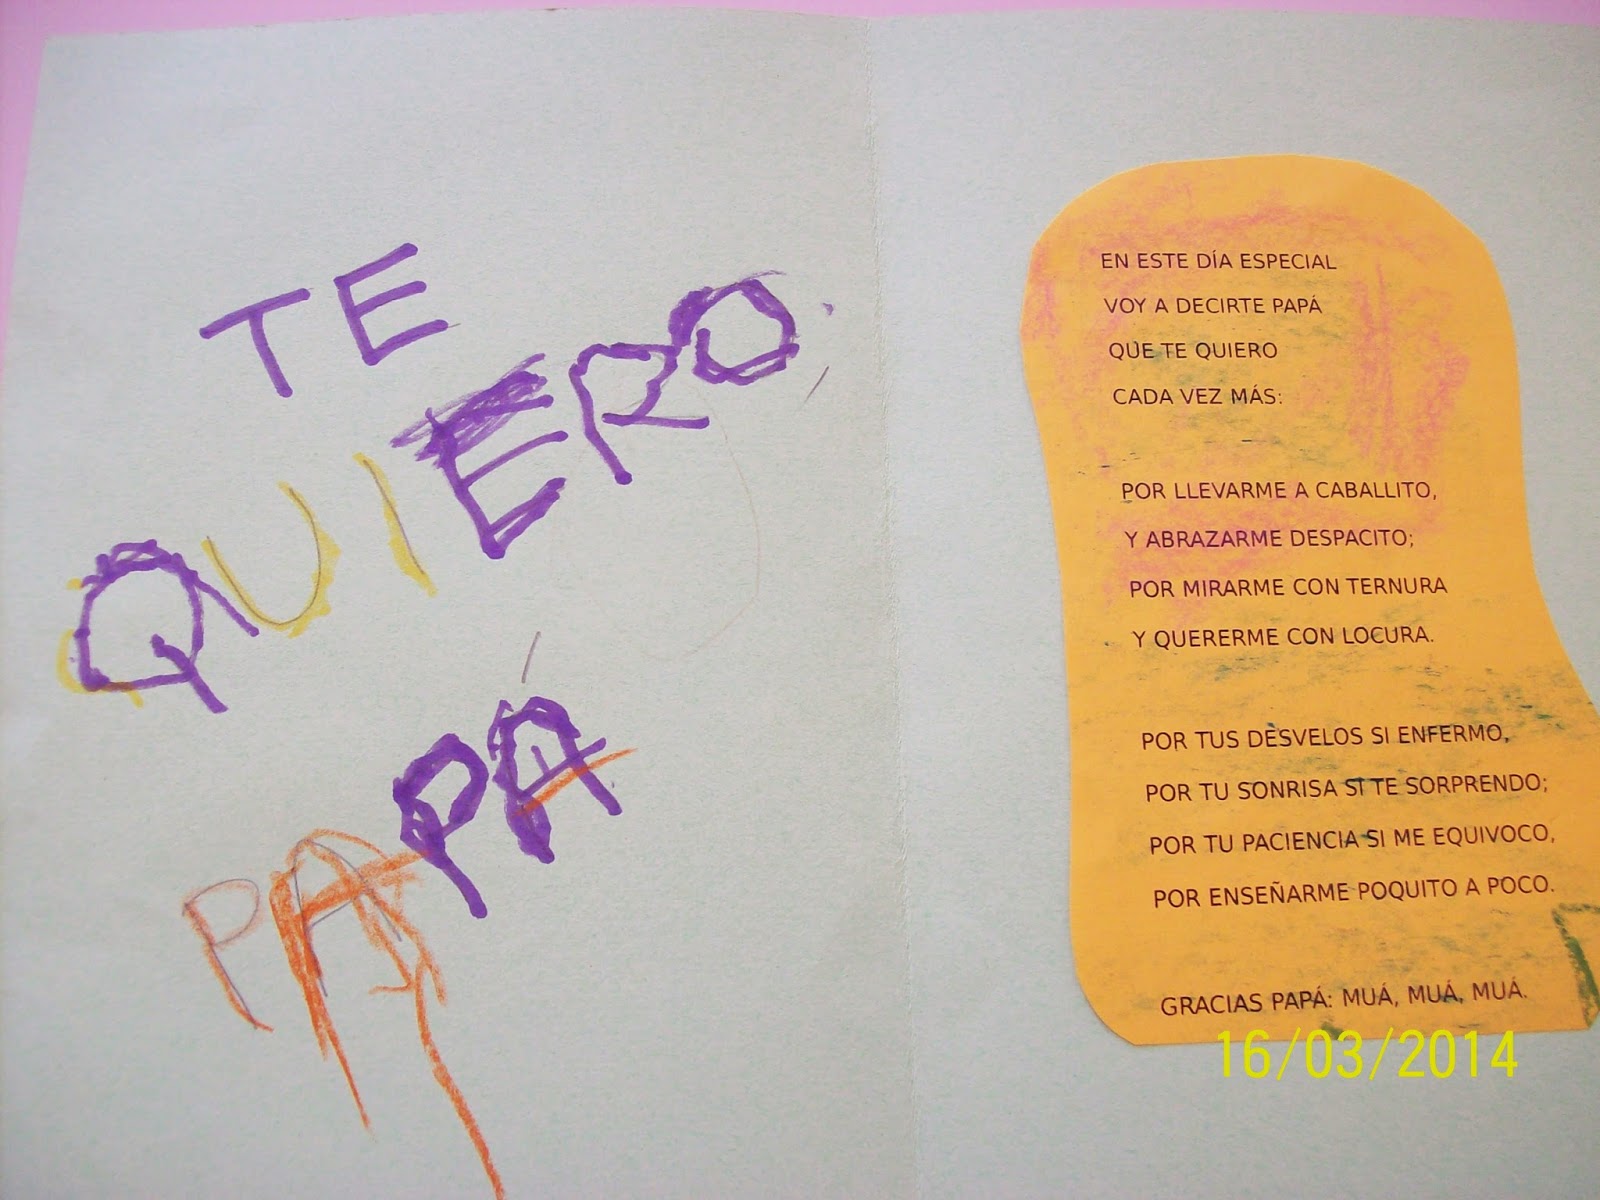 TE
QUIERO
PAPÁ
EN ESTE DÍA ESPECIAL
VOY A DECIRTE PAPÁ
QUE TE QUIERO
CADA VEZ MÁS:
POR LLEVARME A CABALLITO,
Y ABRAZARME DESPACITO;
POR MIRARME CON TERNURA
Y QUERERME CON LOCURA.
POR TUS DESVELOS SI ENFERMO,
POR TU SONRISA SI TE SORPRENDO;
POR TU PACIENCIA SI ME EQUIVOCO,
POR ENSEÑARME POQUITO A POCO.
GRACIAS PAPÁ: MUÁ, MUÁ, MUÁ.
16/03/2014